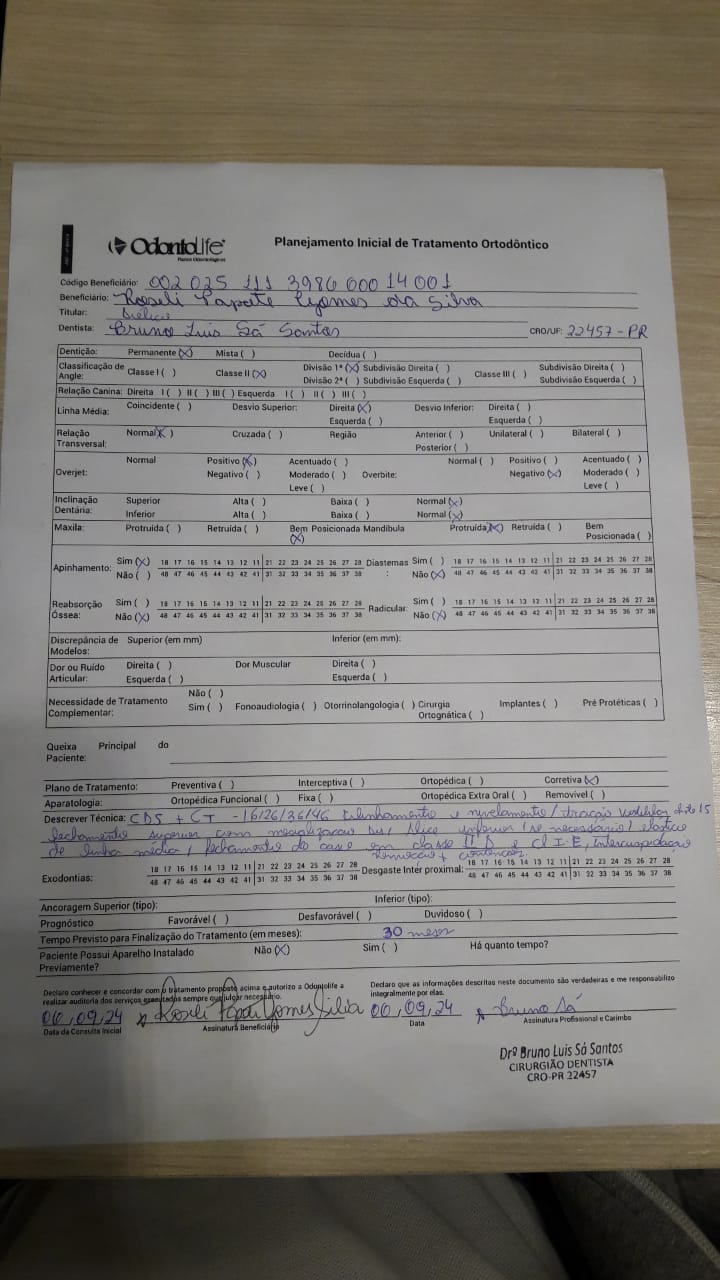 OdontoLife
Planos Odontológicos
Planejamento Inicial de Tratamento Ortodôntico
Código Beneficiário: 002 025 111 3986 000 14 001
Beneficiário: Roseli Papote Gomes da Silva
Titular:
Dentista: Bruno Luis Sá Santos CRO/UF: 22457 - PR
Dentição: Permanente (X) Mista ( ) Decídua ( )
Classificação de Angle: Classe I ( ) Classe II (X) Divisão 1ª (X) Subdivisão Direita ( ) Classe III ( ) Subdivisão Direita ( )
Divisão 2ª ( ) Subdivisão Esquerda ( ) Subdivisão Esquerda ( )
Relação Canina: Direita I ( ) II ( ) III ( ) Esquerda I ( ) II ( ) III ( )
Linha Média: Coincidente ( ) Desvio Superior: Direita (X) Desvio Inferior: Direita ( )
Esquerda ( ) Esquerda ( )
Relação Transversal: Normal (X) Cruzada ( ) Região Anterior ( ) Unilateral ( ) Bilateral ( )
Posterior ( )
Overjet: Normal Positivo (X) Acentuado ( ) Normal ( ) Positivo ( ) Acentuado ( )
Negativo ( ) Moderado ( ) Overbite: Negativo (X) Moderado ( )
Leve ( ) Leve ( )
Inclinação Dentária: Superior Alta ( ) Baixa ( ) Normal (X)
Inferior Alta ( ) Baixa ( ) Normal (X)
Maxila: Protruída ( ) Retruída ( ) Bem Posicionada (X) Mandíbula Protruída (X) Retruída ( ) Bem Posicionada ( )
Apinhamento: Sim (X) 18 17 16 15 14 13 12 11 21 22 23 24 25 26 27 28 Diastemas: Sim ( ) 18 17 16 15 14 13 12 11 21 22 23 24 25 26 27 28
Não ( ) 48 47 46 45 44 43 42 41 31 32 33 34 35 36 37 38 Não (X) 48 47 46 45 44 43 42 41 31 32 33 34 35 36 37 38
Reabsorção Óssea: Sim ( ) 18 17 16 15 14 13 12 11 21 22 23 24 25 26 27 28 Radicular: Sim ( ) 18 17 16 15 14 13 12 11 21 22 23 24 25 26 27 28
Não (X) 48 47 46 45 44 43 42 41 31 32 33 34 35 36 37 38 Não (X) 48 47 46 45 44 43 42 41 31 32 33 34 35 36 37 38
Discrepância de Modelos: Superior (em mm) Inferior (em mm):
Dor ou Ruído Articular: Direita ( ) Dor Muscular Direita ( )
Esquerda ( ) Esquerda ( )
Necessidade de Tratamento Complementar: Não ( )
Sim ( ) Fonoaudiologia ( ) Otorrinolangologia ( ) Cirurgia Ortognática ( ) Implantes ( ) Pré Protéticas ( )
Queixa Principal do Paciente:
Plano de Tratamento: Preventiva ( ) Interceptiva ( ) Ortopédica ( ) Corretiva (X)
Aparatologia: Ortopédica Funcional ( ) Fixa ( ) Ortopédica Extra Oral ( ) Removivel ( )
Descrever Técnica: CDS + CT - 16/26/36/46 alinhamento e nivelamento / tração 15
fechamento superior com inferior (se necessário) elástico
de linha média / fechamento do caso em classe e CL I E, Intercuspidação
remoção + contenção
Exodontias: 18 17 16 15 14 13 12 11 21 22 23 24 25 26 27 28 Desgaste Inter proximal: 18 17 16 15 14 13 12 11 21 22 23 24 25 26 27 28
48 47 46 45 44 43 42 41 31 32 33 34 35 36 37 38 48 47 46 45 44 43 42 41 31 32 33 34 35 36 37 38
Ancoragem Superior (tipo): Inferior (tipo):
Prognóstico Favorável ( ) Desfavorável ( ) Duvidoso ( )
Tempo Previsto para Finalização do Tratamento (em meses): 30 meses
Paciente Possui Aparelho Instalado Previamente? Não (X) Sim ( ) Há quanto tempo?
Declaro conhecer e concordar com o tratamento proposto acima e autorizo a Odontolife a
realizar auditoria dos serviços executados sempre que julgar necessário.
Declaro que as informações descritas neste documento são verdadeiras e me responsabilizo
integralmente por elas.
06,09,24 Roseli Papote Gomes Silva 06,09,24 Bruno Sá
Data da Consulta Inicial Assinatura Beneficiário Data Assinatura Profissional e Carimbo
Drº Bruno Luis Sá Santos
CIRURGIÃO DENTISTA
CRO-PR 22457